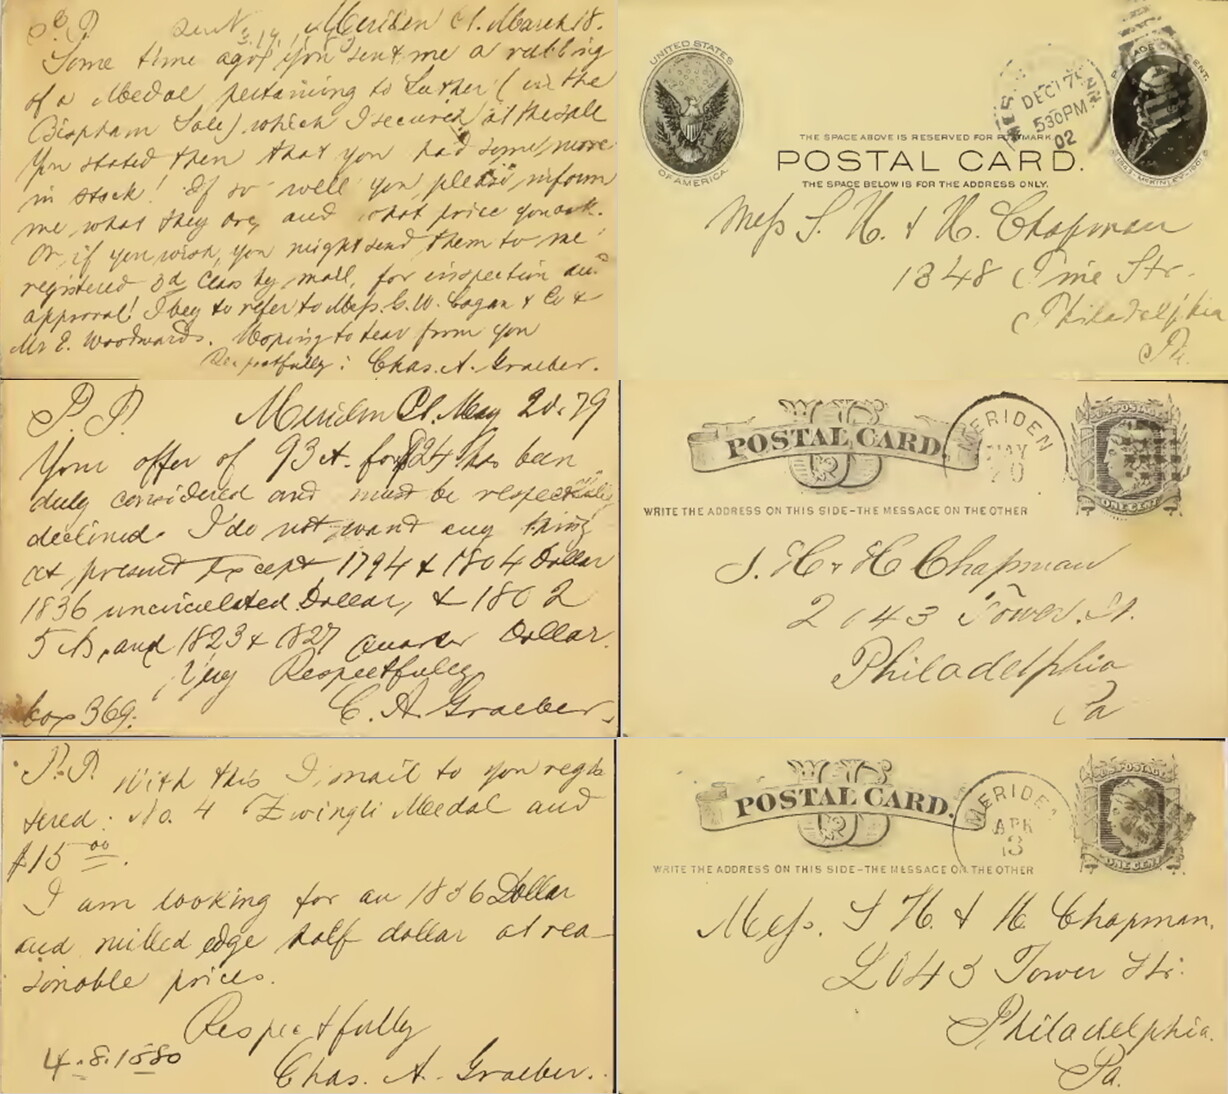 P.P. Meriden Ct. March 18.
Some time ago you sent me a rubbing
of a Medal pertaining to Luther (in the
Bispham Sale) which I secured at the sale
You stated then that you had some more
in stock! If so will you please inform
me what they are, and what price you ask.
Or if you wish, you might send them to me
registered 3d Class by mail, for inspection and
approval! I beg to refer to Mess. G. W. Cogan & Co &
Mr E. Woodwards. Hoping to hear from you
Respectfully: Chas. A. Graeber.
UNITED STATES
OF AMERICA.
DEC 17
530 PM
02
THE SPACE ABOVE IS RESERVED FOR POSTMARK
POSTAL CARD.
THE SPACE BELOW IS FOR THE ADDRESS ONLY.
Mess S. H. & H. Chapman
1348 Pine Str.
Philadelphia
Pa.
P.P. Meriden Ct. May 20. 79
Your offer of 93 ct. for $24 has been
duly considered and must be respectfully
declined. I do not want any thing
at present Except 1794 & 1804 Dollar
1836 uncirculated Dollar, & 1802
5 cts, and 1823 & 1827 Quarter Dollar.
Very Respectfully
box 369. C. A. Graeber.
POSTAL CARD.
MERIDEN
MAY
20
U.S. POSTAGE
ONE CENT
WRITE THE ADDRESS ON THIS SIDE-THE MESSAGE ON THE OTHER
S. H & H Chapman
2043 Tower St.
Philadelphia
Pa
P.P. With this I mail to you regis
tered: No. 4 Zwingli Medal and
$15 00.
I am looking for an 1836 Dollar
and milled edge half dollar at rea-
sonable prices.
Respectfully
4.8.1880 Chas. A. Graeber.
POSTAL CARD.
MERIDEN
APR
13
U.S. POSTAGE
ONE CENT
WRITE THE ADDRESS ON THIS SIDE-THE MESSAGE ON THE OTHER
Mess. S H. & H Chapman.
2043 Tower Str.
Philadelphia.
Pa.